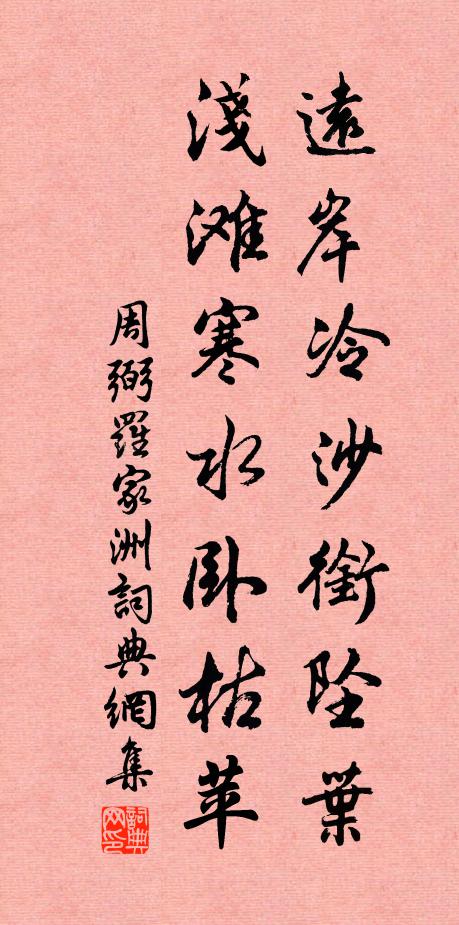 遠岸冷沙銜墜葉
淺滩寒水卧枯苹
周弼羅家洲詞典網集
詞典网印